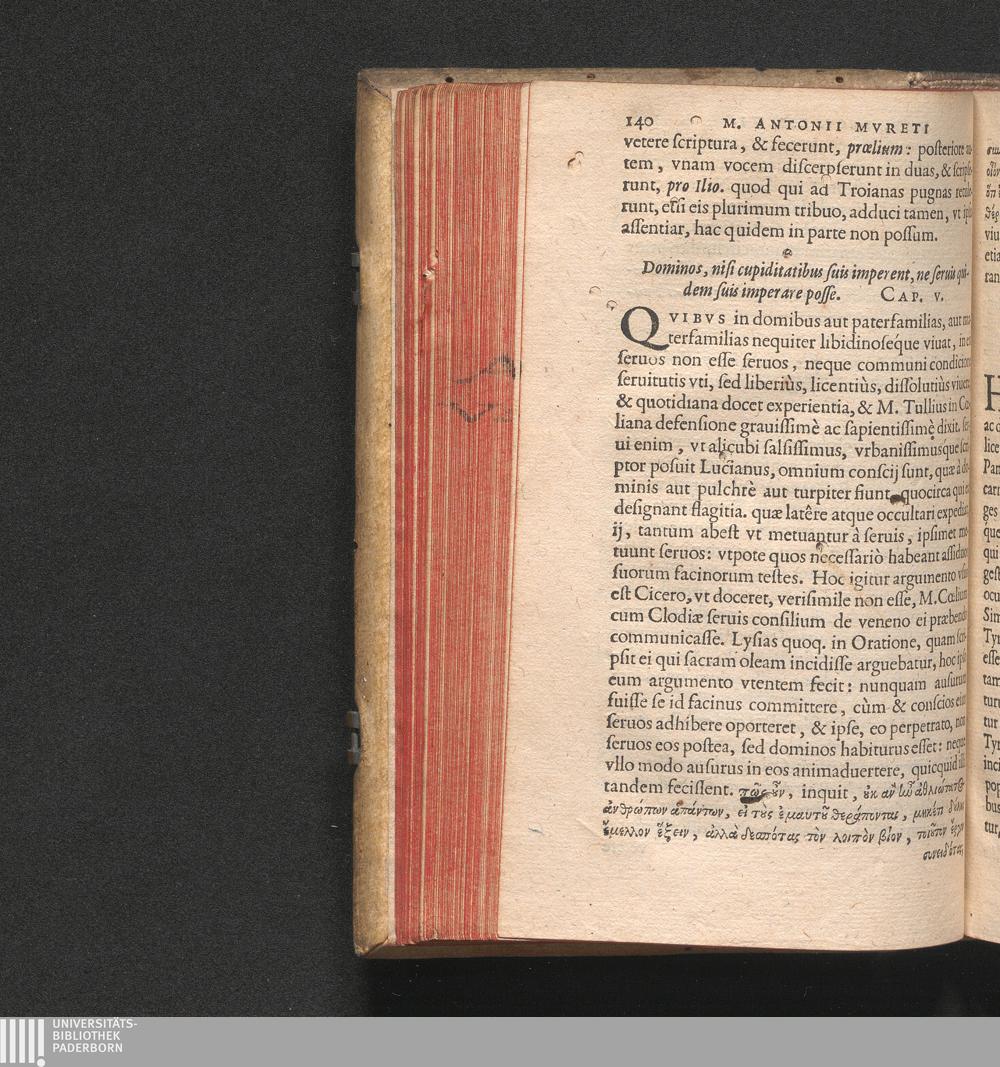 140 M. ANTONII MVRETI
vetere scriptura, & fecerunt, prœlium: posteriore
tem, vnam vocem discerpserunt in duas, &
runt, pro Ilio. quod qui ad Troianas pugnas
runt, etsi eis plurimum tribuo, adduci tamen, vt
assentiar, hac quidem in parte non possum.
Dominos, nisi cupiditatibus suis imperent, ne seruis qui-
dem suis imperare posse. CAP. V.
QVIBVS in domibus aut paterfamilias, aut
terfamilias nequiter libidinoséque viuat,
seruos non esse seruos, neque communi
seruitutis vti, sed liberiùs, licentiùs, dissolutiùs
& quotidiana docet experientia, & M. Tullius in
liana defensione grauissimè ac sapientissimè dixit.
ui enim, vt alicubi salsissimus, vrbanissimusque
ptor posuit Lucianus, omnium conscij sunt, quæ à
minis aut pulchrè aut turpiter fiunt. quocirca
designant flagitia. quæ latêre atque occultari
ij, tantum abest vt metuantur à seruis, ipsimet
tuunt seruos: vtpote quos necessariò habeant
suorum facinorum testes. Hoc igitur argumento
est Cicero, vt doceret, verisimile non esse, M.
cum Clodiæ seruis consilium de veneno ei
communicasse. Lysias quoq. in Oratione, quam
psit ei qui sacram oleam incidisse arguebatur, hoc
eum argumento vtentem fecit: nunquam
fuisse se id facinus committere, cùm & conscios
seruos adhibere oporteret, & ipse, eo perpetrato,
seruos eos postea, sed dominos habiturus esset:
vllo modo ausurus in eos animaduertere, quicquid
tandem fecissent. πῶς οὖν, inquit, οὐκ ἂν ἦν
ἀνθρώπων ἁπάντων, εἰ τοὺς ἐμαυτοῦ θεράποντας, μηκέτι
ἔμελλον ἕξειν, ἀλλὰ δεσπότας τὸν λοιπὸν βίον, τοιοῦτον
συνειδότας;
viu
etia
ran
H
ac
lice
Pan
carn
ges
que
qui
gest
ocu
Sim
Tyr
esse
tam
turu
tur
Tyr
inci
pop
bus
tur,
UNIVERSITÄTS-
BIBLIOTHEK
PADERBORN